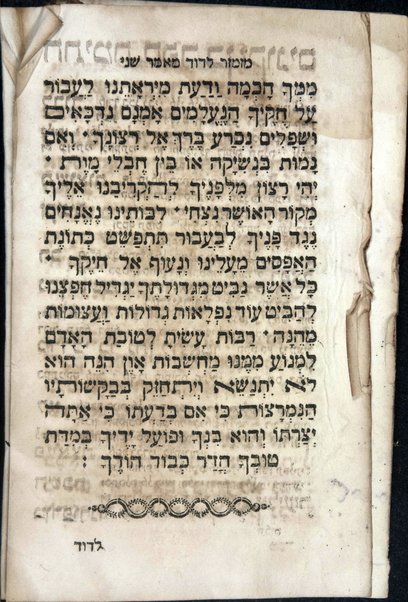 מזמור לדוד מאמר שני
ממך חכמה ודעת מיראתנו לעבור
על חקיך הנעלמים אמנם נדכאים
ושפלים נכרע ברך אל רצונך ׃ ואם
נמות בנשיקה או בין חבלי מירת ׃
יהי רצון מלפניך להקריבנו אליך
מקור האושר נצחי ׃ לבותינו נאנחים
נגד פניך לבעבור תתפשט כתונת
האפסים מעלינו ונעוף אל חיקך ׃
כל אשר נביט מגדולתך יגדיל חפצנו
להביט עוד נפלאות גדולות ועצומות
מהנה ׃ רבות עשית לטובת האדם
למנוע ממנו מחשבות און הנה הוא
לא יתנשא ויתחזק בבקשותיו
הנמרצות כי אם בדעתו כי אתה
יצרתו והוא בנך ופועל ידיך במדת
טובך הדר כבוד הודך ׃
לדוד